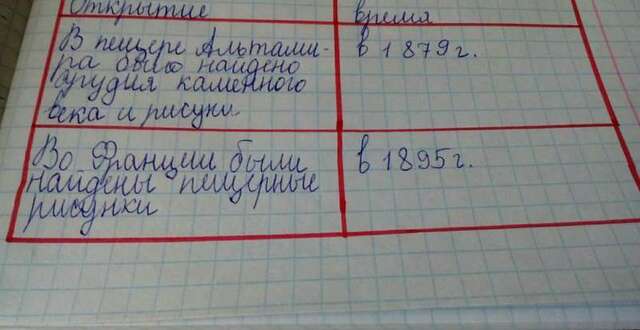 Открытие
время
В пещере Альтами-
ра было найдено
орудия каменного
века и рисунки
в 1879 г.
Во Франции были
найдены пещерные
рисунки
в 1895 г.